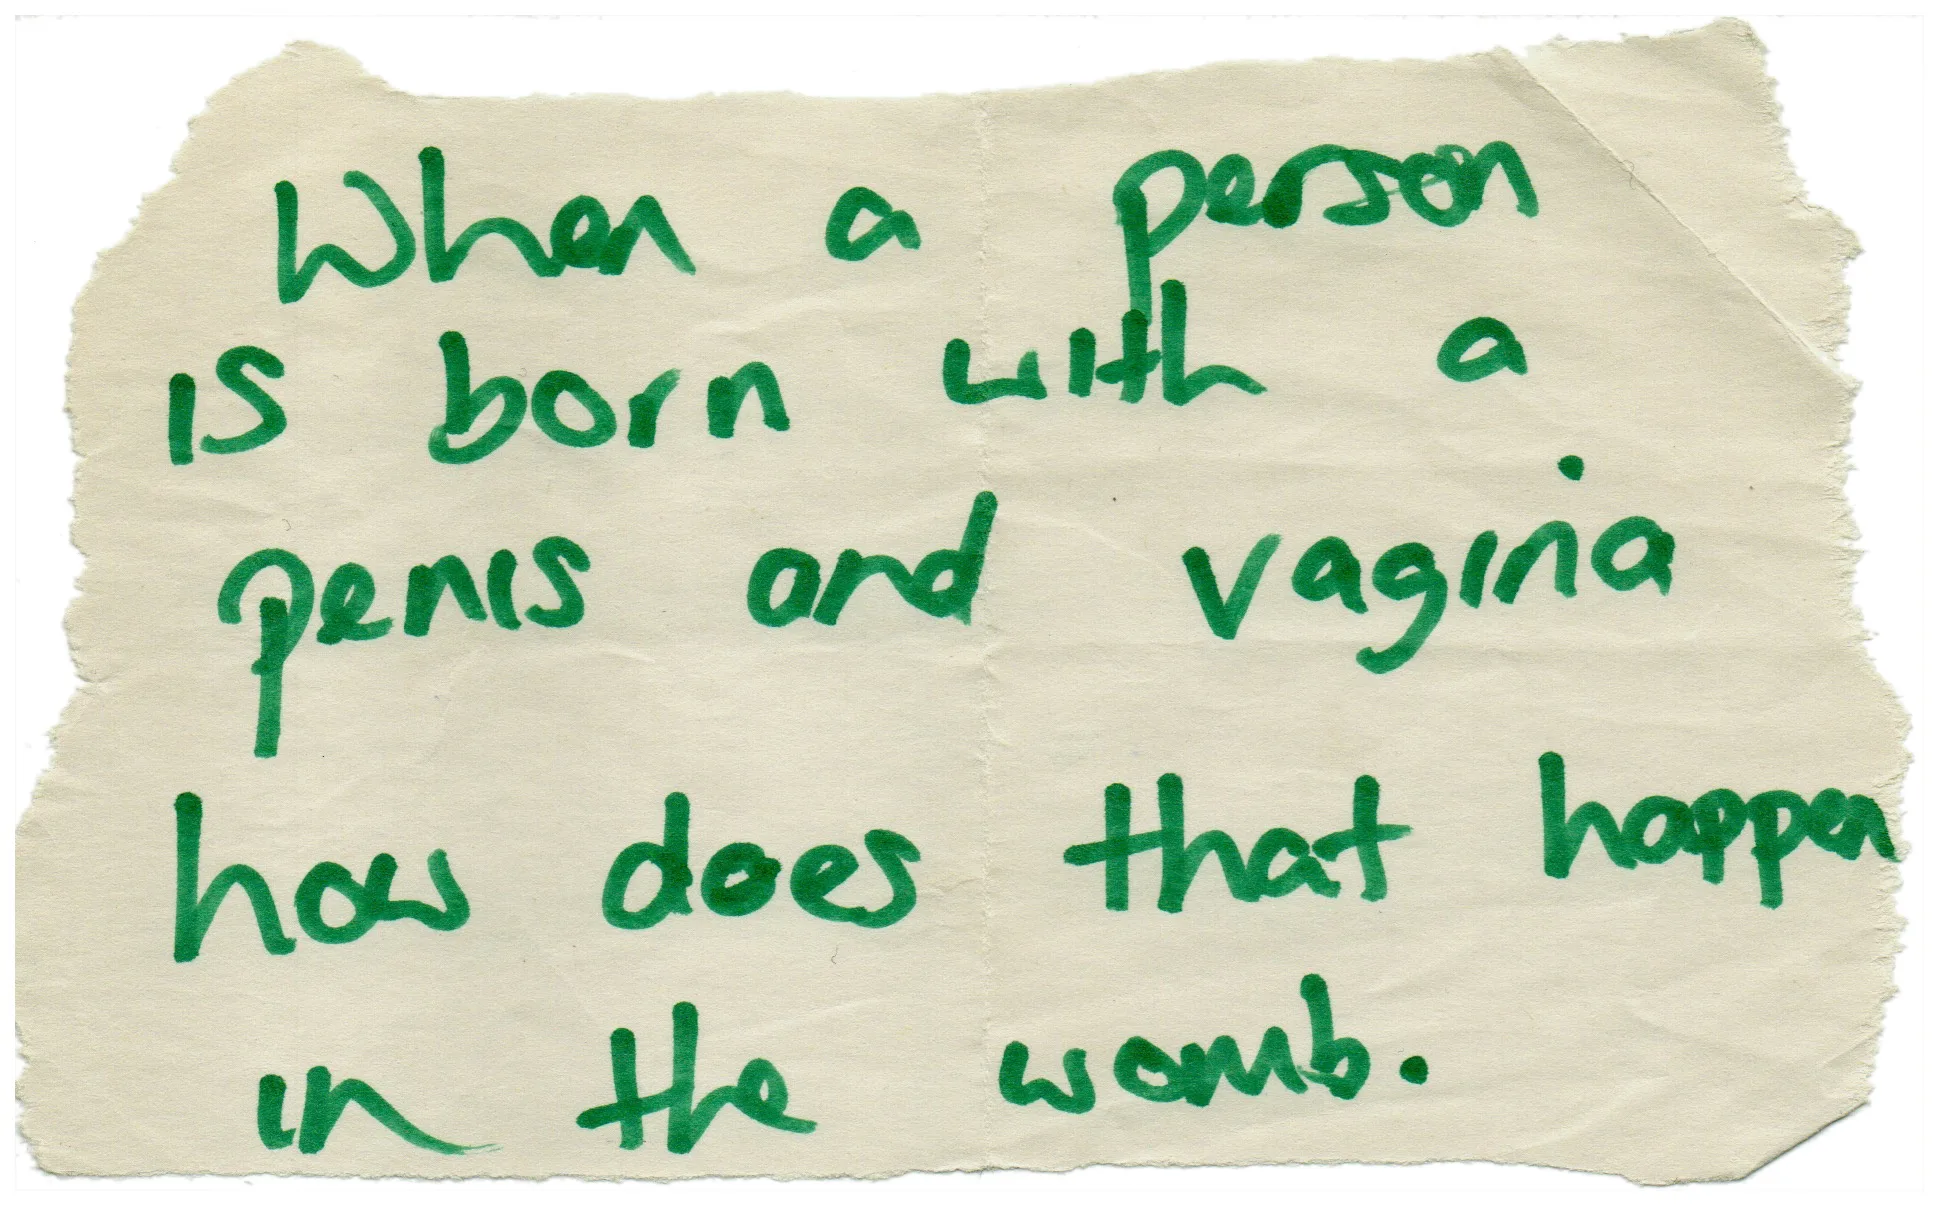 When a person
is born with a
penis and vagina
how does that happen
in the womb.